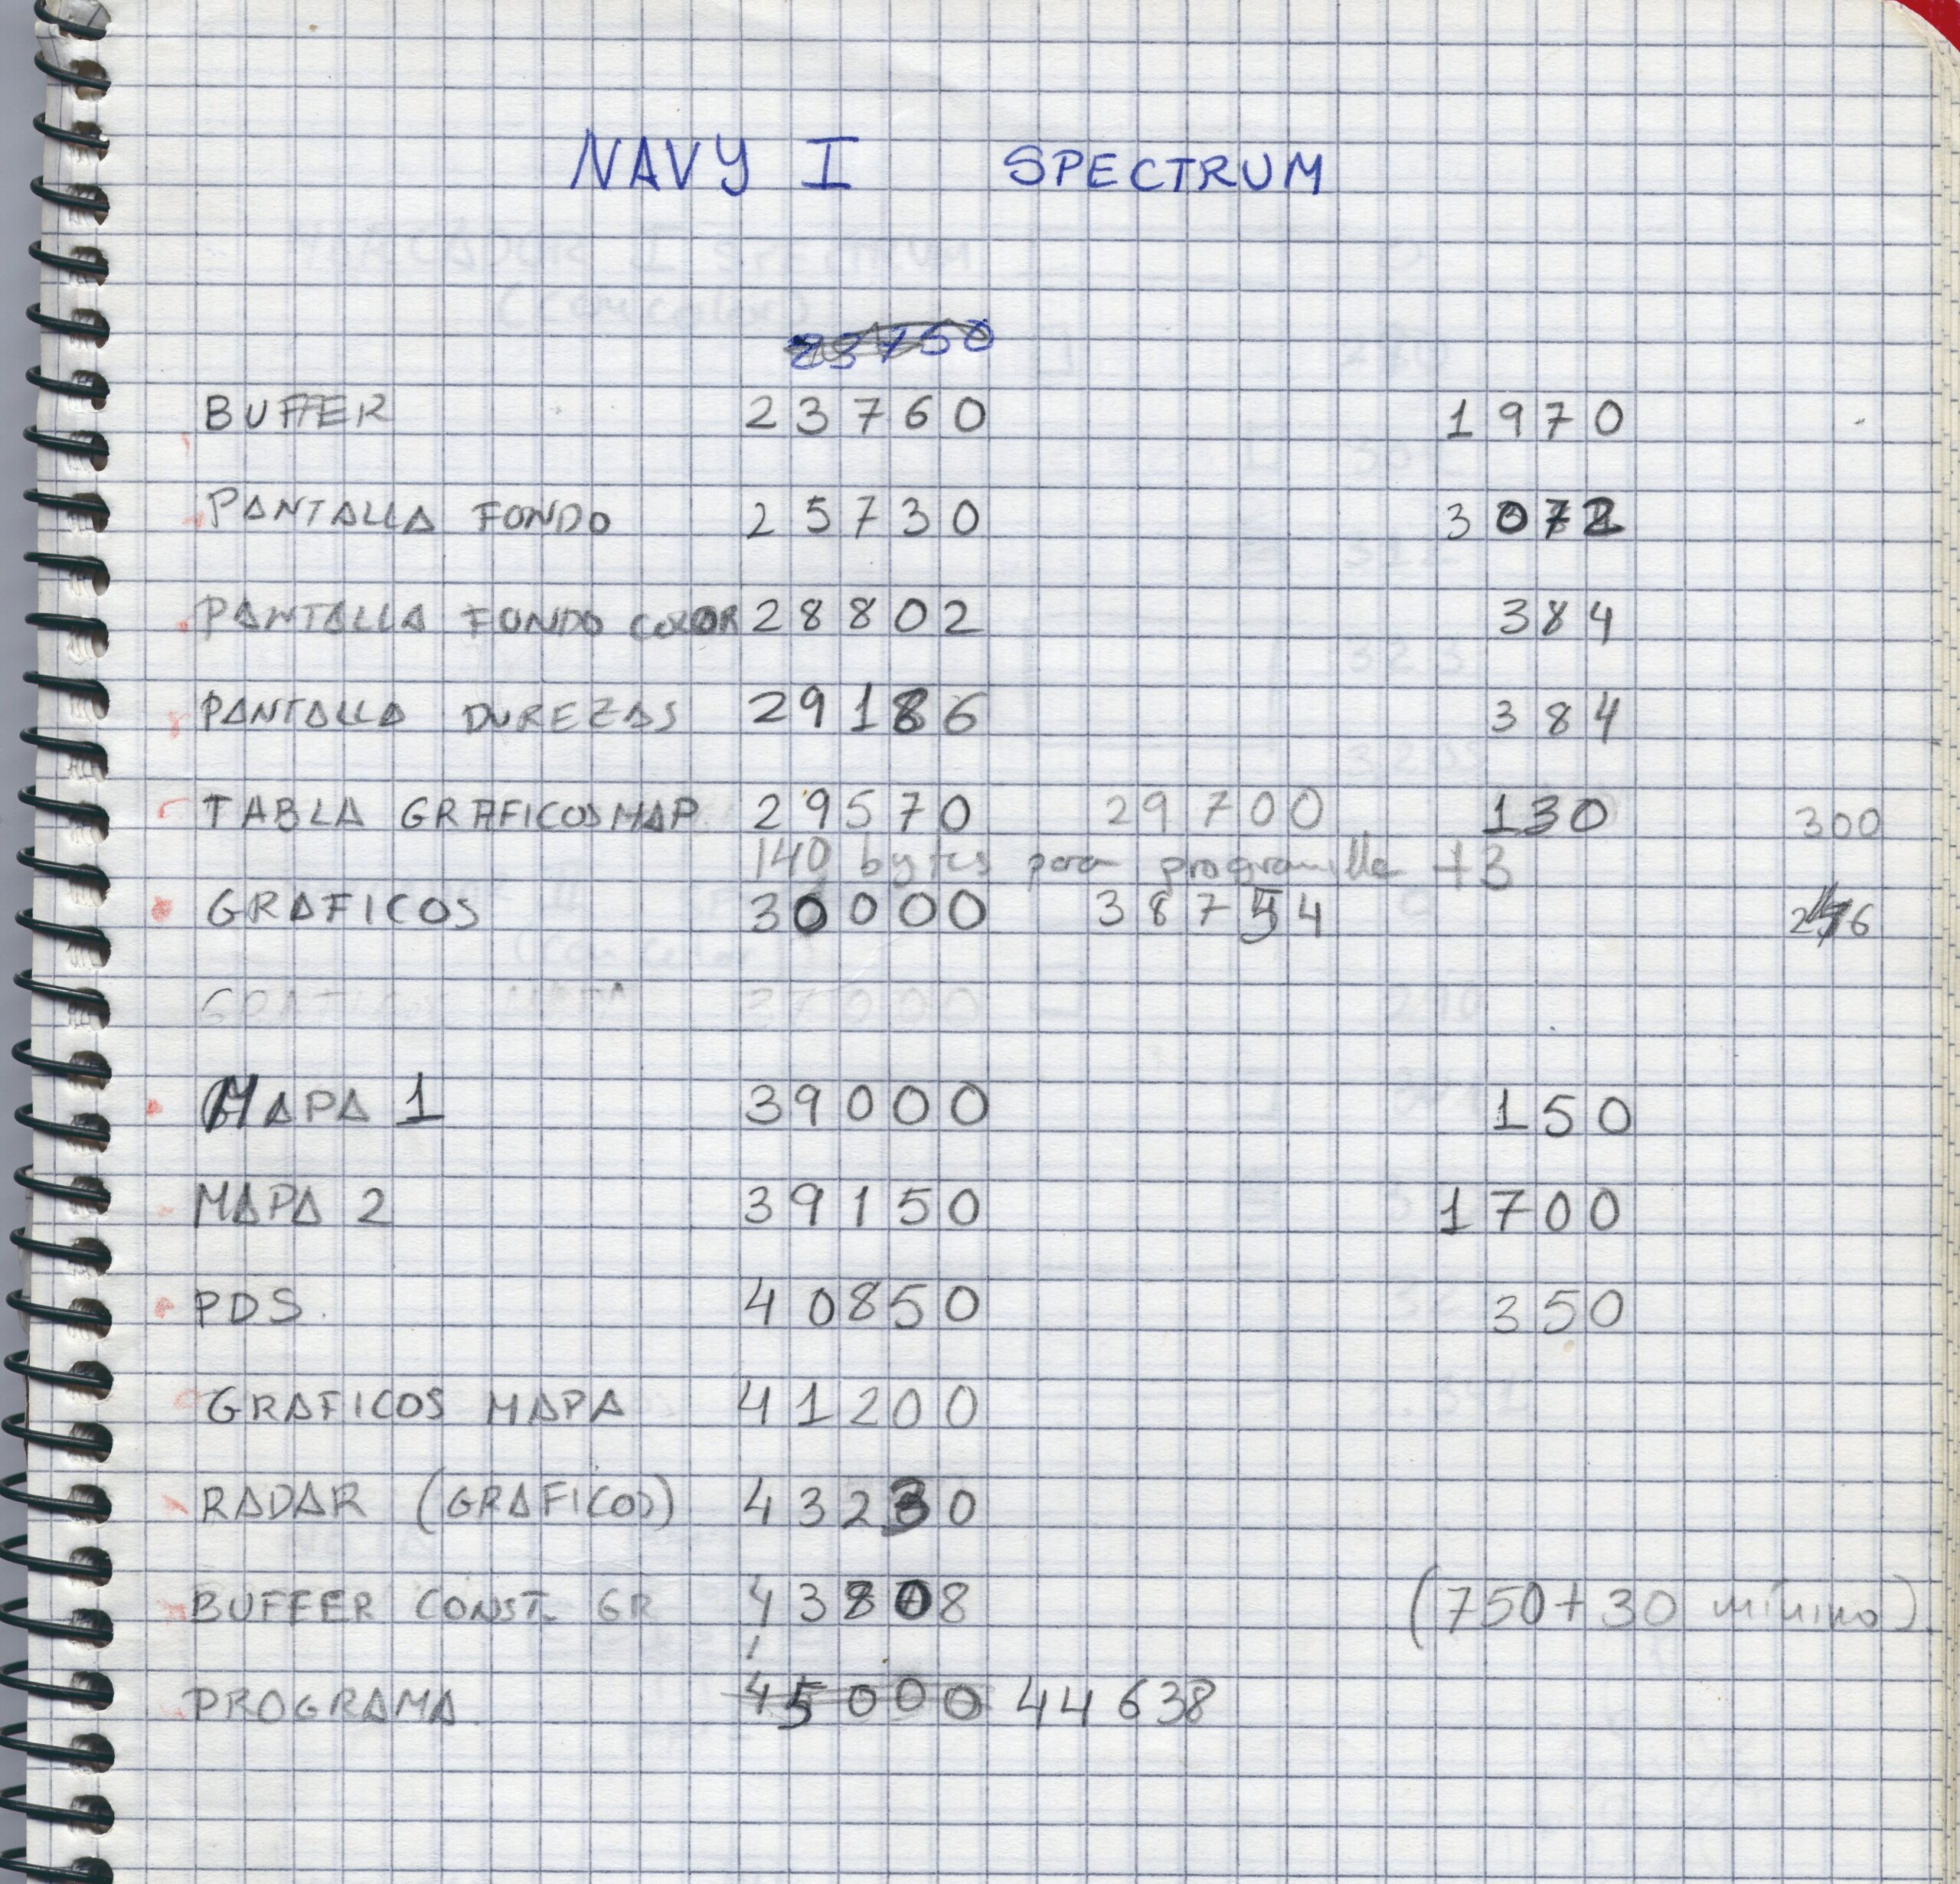 NAVY I SPECTRUM
23750
BUFFER 23760 1970
PANTALLA FONDO 25730 3072
PANTALLA FONDO COLOR 28802 384
PANTALLA DUREZAS 29186 384
TABLA GRAFICOS MAP. 29570 29700 130 300
140 bytes para programilla +3
GRAFICOS 30000 38754
GRAFICOS MAPA 37000
MAPA 1 39000 150
MAPA 2 39150 1700
PDS. 40850 350
GRAFICOS MAPA 41200
RADAR (GRAFICOS) 43230
BUFFER CONST. GR 43808 (750+30 mínimo)
PROGRAMA 45000 44638